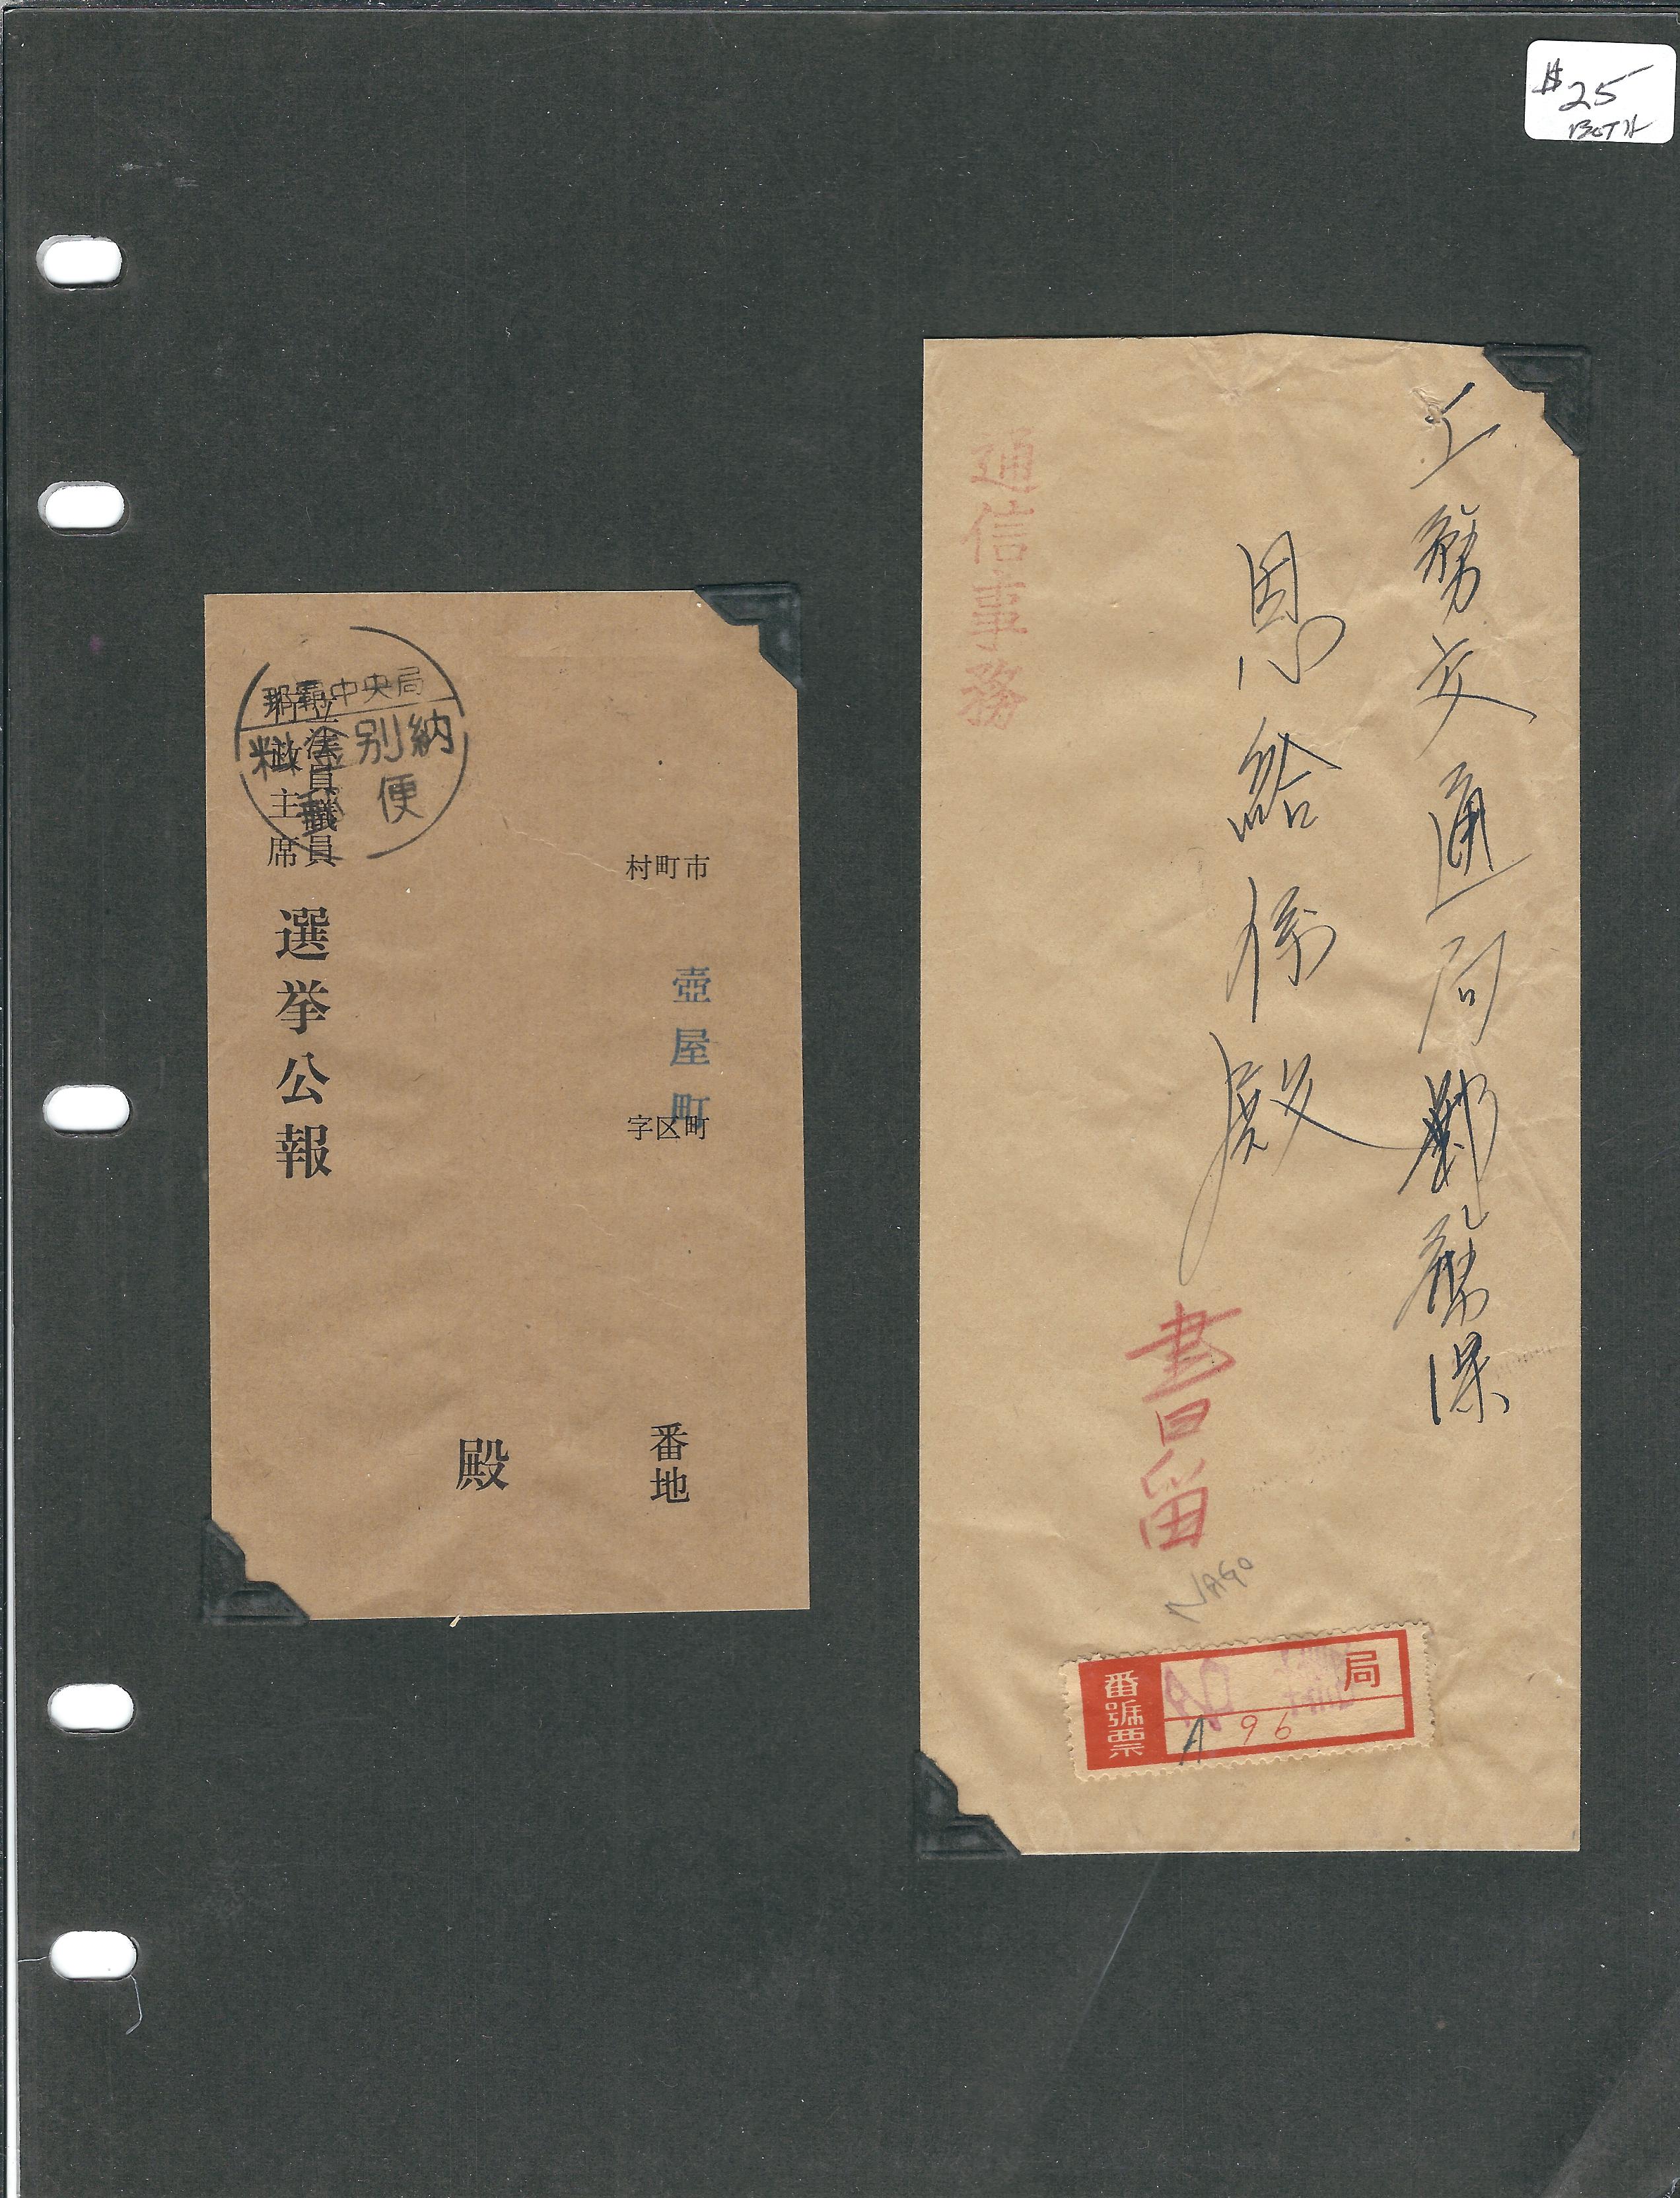 $25
BOTH
那覇中央局
料金別納
郵便
立法院議員
行政主席
選挙公報
市町村
壺屋町
町区字
番地
殿
工務交通局郵務課
恩給係殿
通信事務
書留
NAGO
番號票
局
A 96